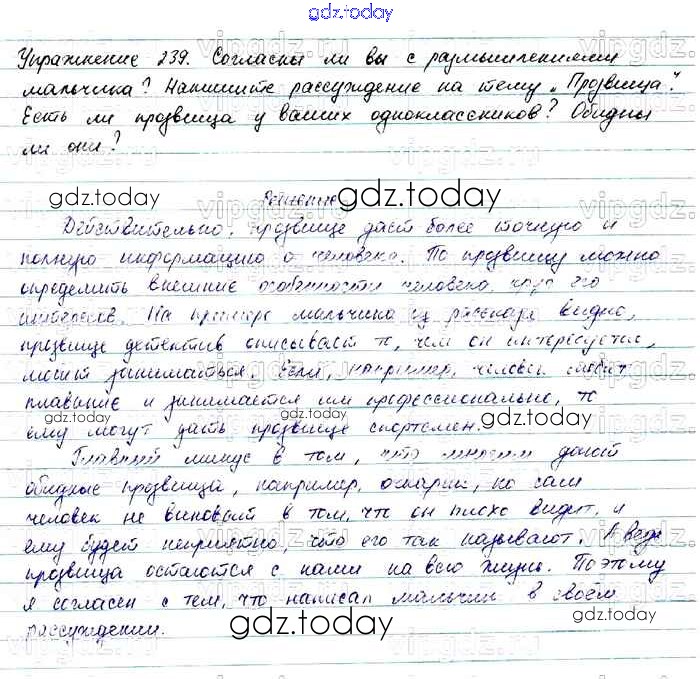 gdz.today
Упражнение 239. Согласны ли вы с размышлениями
мальчика? Напишите рассуждение на тему „Прозвища".
Есть ли прозвища у ваших одноклассников? Обидны
ли они?
gdz.today gdz.today
Решение
Действительно, прозвище даст более точную и
полную информацию о человеке. По прозвищу можно
определить внешние особенности человека, круг его
интересов. На примере мальчика из рассказа видно,
прозвище детектив описывает то, чем он интересуется,
может заниматься. Если, например, человек любит
плавание и занимается им профессионально, то
gdz.today gdz.today gdz.today
ему могут дать прозвище спортсмен.
Главный минус в том, что многим дают
обидные прозвища, например, очкарик, но сам
человек не виноват в том, что он плохо видит, и
ему будет неприятно, что его так называют. А ведь
прозвища остаются с нами на всю жизнь. Поэтому
я согласен с тем, что написал мальчик в своём
рассуждении.
gdz.today
gdz.today